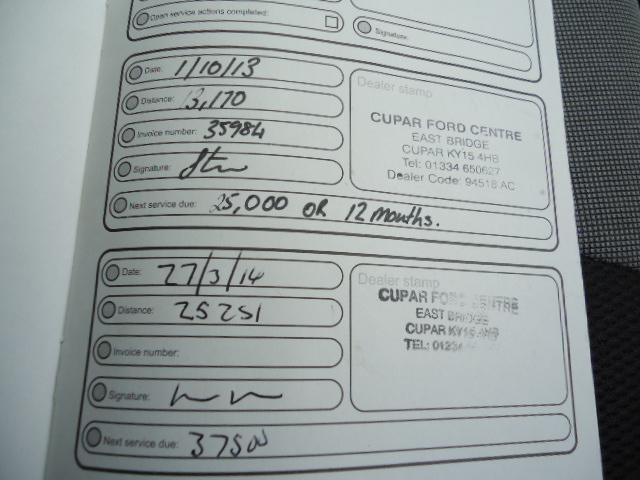 Open service actions completed:
Signature:
Date: 1/10/13
Distance: 13,170
Invoice number: 35984
Signature:
Next service due: 25,000 OR 12 months.
Dealer stamp
CUPAR FORD CENTRE
EAST BRIDGE
CUPAR KY15 4HB
Tel: 01334 650627
Dealer Code: 94518 AC
Date: 27/3/14
Distance: 25251
Invoice number:
Signature:
Next service due: 37500
Dealer stamp
CUPAR FORD CENTRE
EAST BRIDGE
CUPAR KY15 4HB
TEL: 01334